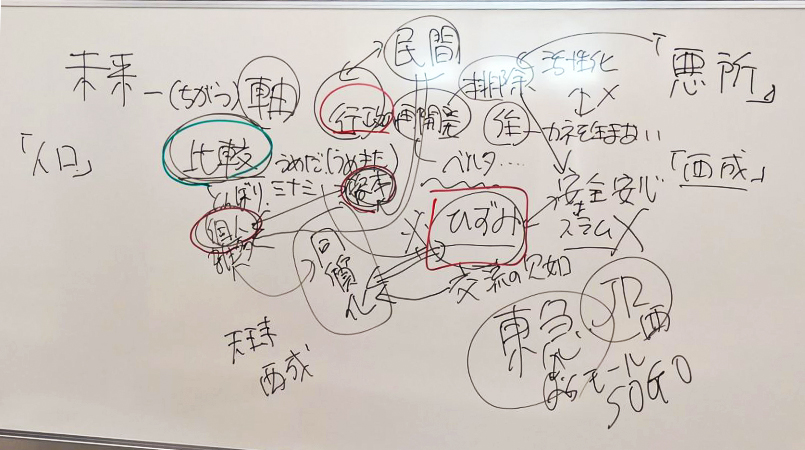 未来-(ちがう)軸
民間
行政の再開発
排除
活性化
「悪所」
住
カネを生まない
「人口」
比較
うめだ.(うめきた)
ミナミ
資本
ベルタ....
「西成」
安全安心
スラム
個人
ひずみ
同質化
交流の欠如
天王寺
西成
東急
JR西
モール
SOGO